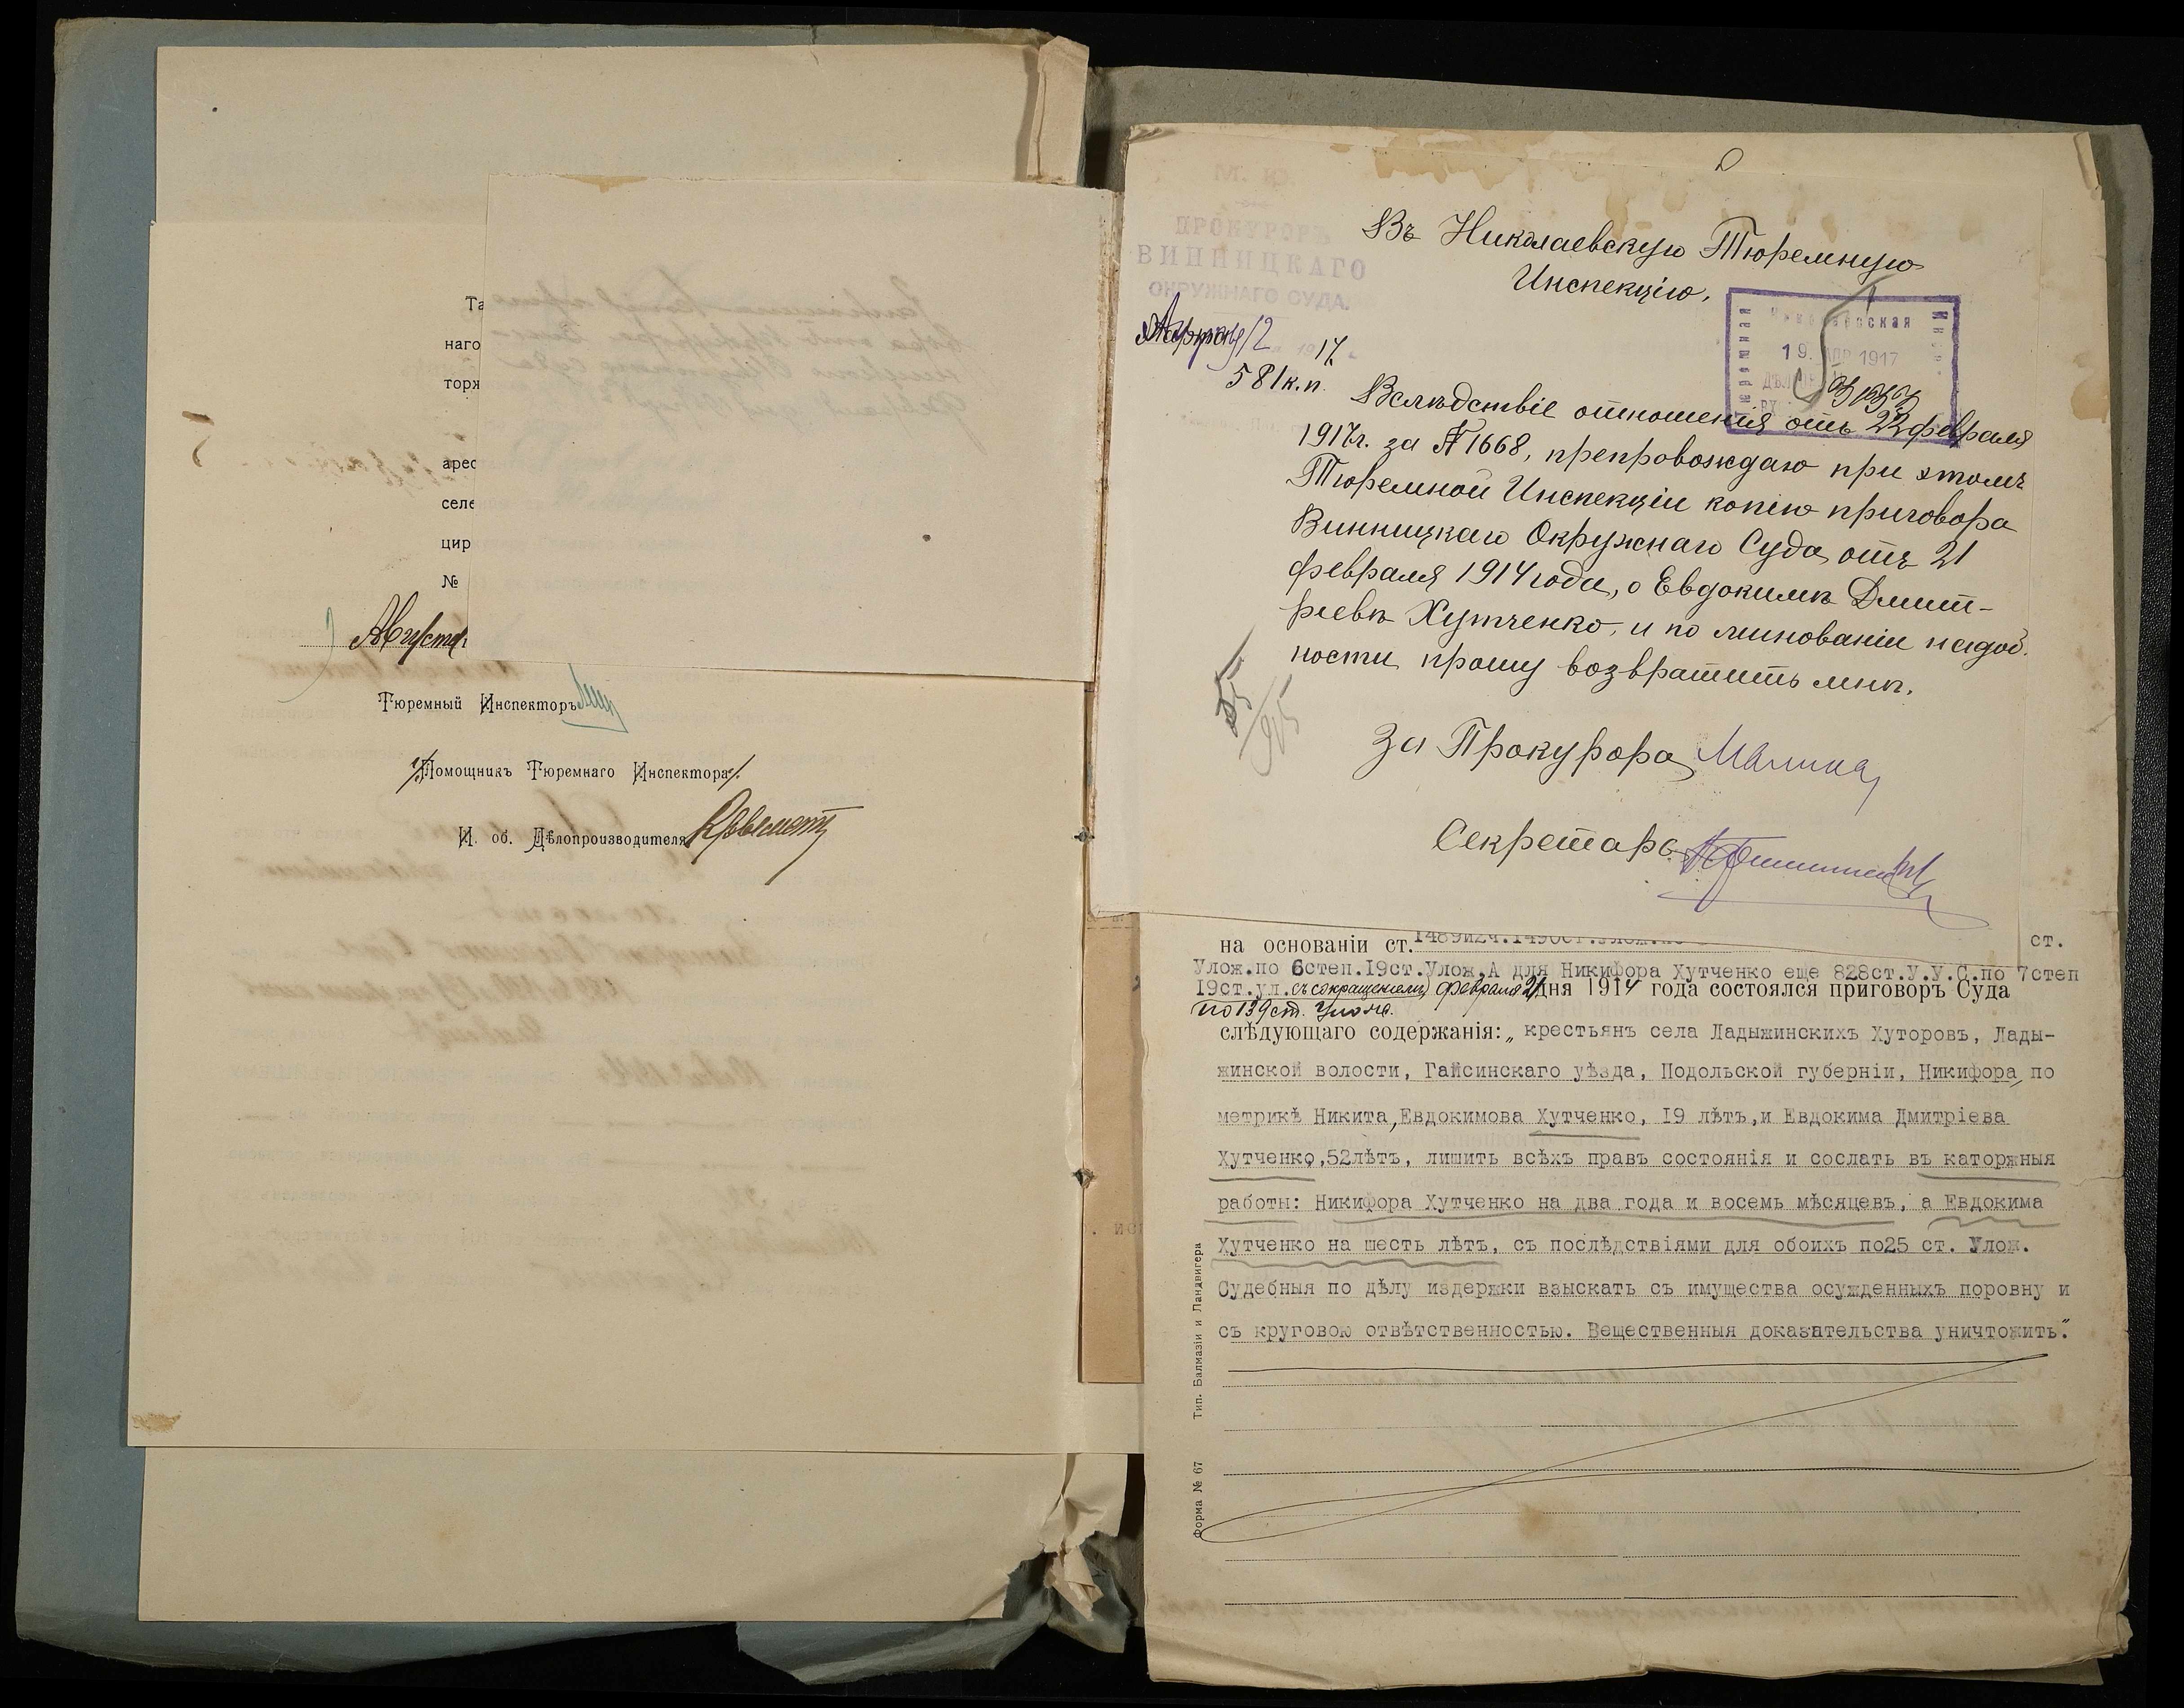 Та
наго
торж
арес
селе
цир
№
Августа
Тюремный Инспекторъ
Помощникъ Тюремнаго Инспектора
И. об. Дѣлопроизводителя
М. Ю.
ПРОКУРОРЪ
ВИННИЦКАГО
ОКРУЖНАГО СУДА.
12
17
581 к.п.
Въ Николаевскую Тюремную
Инспекцію.
19. АПР 1917
Вслѣдствіе отношенія отъ 22 февраля
1917г. за № 1668, препровождаю при этомъ
Тюремной Инспекціи копію приговора
Винницкаго Окружнаго Суда отъ 21
февраля 1914 года, о Евдокимѣ Дмит-
ріевѣ Хутченко, и по минованіи надоб.
ности прошу возвратить мнѣ.
За Прокурора
Секретарь
на основаніи ст. 1489и2ч.1490ст.Улож. ст.
Улож.по 6степ.19ст.Улож.А для Никифора Хутченко еще 828ст.У.У.С.по 7степ
19ст.ул.съ сокращеніемъ февраля 21 дня 1914 года состоялся приговоръ Суда
по 139 ст. Улож.
слѣдующаго содержанія: „крестьянъ села Ладыжинскихъ Хуторовъ, Лады-
жинской волости, Гайсинскаго уѣзда, Подольской губерніи, Никифора, по
метрикѣ Никита,Евдокимова Хутченко, 19 лѣтъ,и Евдокима Дмитріева
Хутченко,52лѣтъ, лишить всѣхъ правъ состоянія и сослать въ каторжныя
работы: Никифора Хутченко на два года и восемь мѣсяцевъ, а Евдокима
Хутченко на шесть лѣтъ, съ послѣдствіями для обоихъ по25 ст. Улож.
Судебныя по дѣлу издержки взыскать съ имущества осужденныхъ поровну и
съ круговою отвѣтственностью. Вещественныя доказательства уничтожить".
Форма № 67 Тип. Балмазіи и Ландвигера